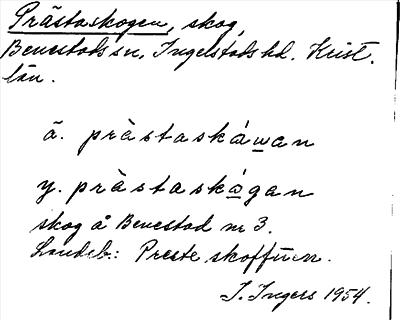 Prästaskogen, skog,
Benestads sn, Ingelstads hd. Krist.
län.
ä. pràstaskáwan
y. pràstaskágan
skog å Benestad nr 3.
Landeb.: Preste skoffuen.
I. Ingers 1954.